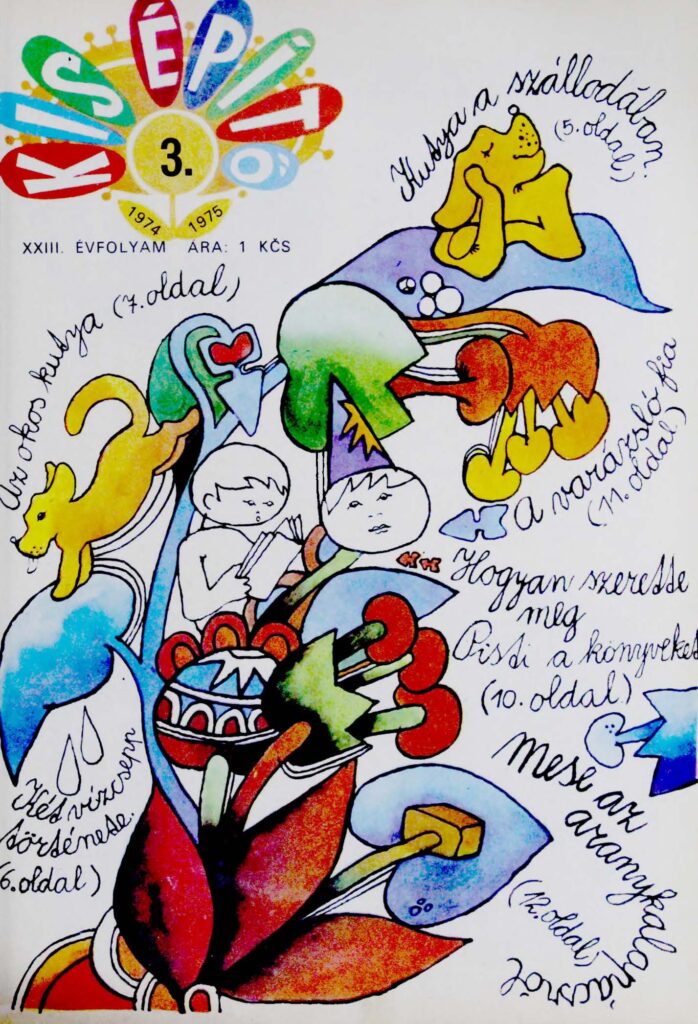 KISÉPÍTŐ
3.
1974 1975
XXIII. ÉVFOLYAM ÁRA: 1 KČS
Kutya a szállodában.
(5. oldal)
Az okos kutya (7. oldal)
A varázsló fia
(11. oldal)
Hogyan szerette
meg
Pisti a könyveket
(10. oldal)
Két vízcsepp
története.
(6. oldal)
Mese az
aranykalapácsról
(12. oldal)